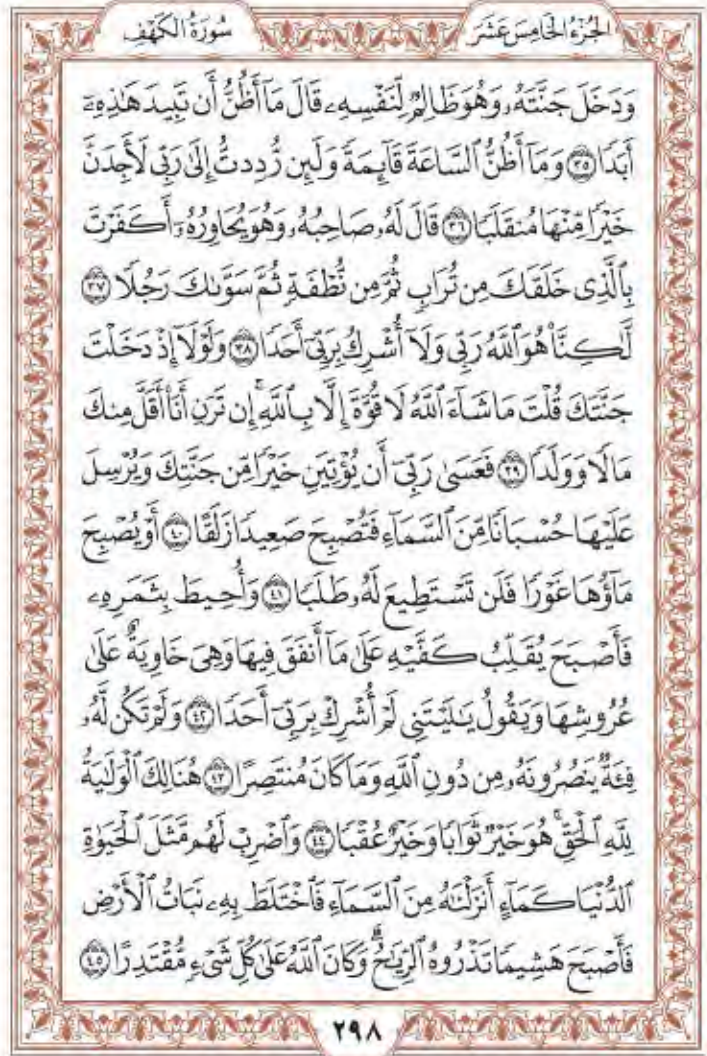 الجُزْءُ الخَامِسَ عَشَرَ سُورَةُ الكَهْفِ
وَدَخَلَ جَنَّتَهُۥ وَهُوَ ظَالِمٌ لِّنَفْسِهِۦ قَالَ مَآ أَظُنُّ أَن تَبِيدَ هَٰذِهِۦٓ
أَبَدًا ٣٥ وَمَآ أَظُنُّ ٱلسَّاعَةَ قَآئِمَةً وَلَئِن رُّدِدتُّ إِلَىٰ رَبِّي لَأَجِدَنَّ
خَيْرًا مِّنْهَا مُنقَلَبًا ٣٦ قَالَ لَهُۥ صَاحِبُهُۥ وَهُوَ يُحَاوِرُهُۥٓ أَكَفَرْتَ
بِٱلَّذِي خَلَقَكَ مِن تُرَابٍ ثُمَّ مِن نُّطْفَةٍ ثُمَّ سَوَّىٰكَ رَجُلًا ٣٧
لَّٰكِنَّا۠ هُوَ ٱللَّهُ رَبِّي وَلَآ أُشْرِكُ بِرَبِّيٓ أَحَدًا ٣٨ وَلَوْلَآ إِذْ دَخَلْتَ
جَنَّتَكَ قُلْتَ مَا شَآءَ ٱللَّهُ لَا قُوَّةَ إِلَّا بِٱللَّهِۚ إِن تَرَنِ أَنَا۠ أَقَلَّ مِنكَ
مَالًا وَوَلَدًا ٣٩ فَعَسَىٰ رَبِّيٓ أَن يُؤْتِيَنِ خَيْرًا مِّن جَنَّتِكَ وَيُرْسِلَ
عَلَيْهَا حُسْبَانًا مِّنَ ٱلسَّمَآءِ فَتُصْبِحَ صَعِيدًا زَلَقًا ٤٠ أَوْ يُصْبِحَ
مَآؤُهَا غَوْرًا فَلَن تَسْتَطِيعَ لَهُۥ طَلَبًا ٤١ وَأُحِيطَ بِثَمَرِهِۦ
فَأَصْبَحَ يُقَلِّبُ كَفَّيْهِ عَلَىٰ مَآ أَنفَقَ فِيهَا وَهِيَ خَاوِيَةٌ عَلَىٰ
عُرُوشِهَا وَيَقُولُ يَٰلَيْتَنِي لَمْ أُشْرِكْ بِرَبِّيٓ أَحَدًا ٤٢ وَلَمْ تَكُن لَّهُۥ
فِئَةٌ يَنصُرُونَهُۥ مِن دُونِ ٱللَّهِ وَمَا كَانَ مُنتَصِرًا ٤٣ هُنَالِكَ ٱلْوَلَٰيَةُ
لِلَّهِ ٱلْحَقِّۚ هُوَ خَيْرٌ ثَوَابًا وَخَيْرٌ عُقْبًا ٤٤ وَٱضْرِبْ لَهُم مَّثَلَ ٱلْحَيَوٰةِ
ٱلدُّنْيَا كَمَآءٍ أَنزَلْنَٰهُ مِنَ ٱلسَّمَآءِ فَٱخْتَلَطَ بِهِۦ نَبَاتُ ٱلْأَرْضِ
فَأَصْبَحَ هَشِيمًا تَذْرُوهُ ٱلرِّيَٰحُۗ وَكَانَ ٱللَّهُ عَلَىٰ كُلِّ شَيْءٍ مُّقْتَدِرًا ٤٥
٢٩٨